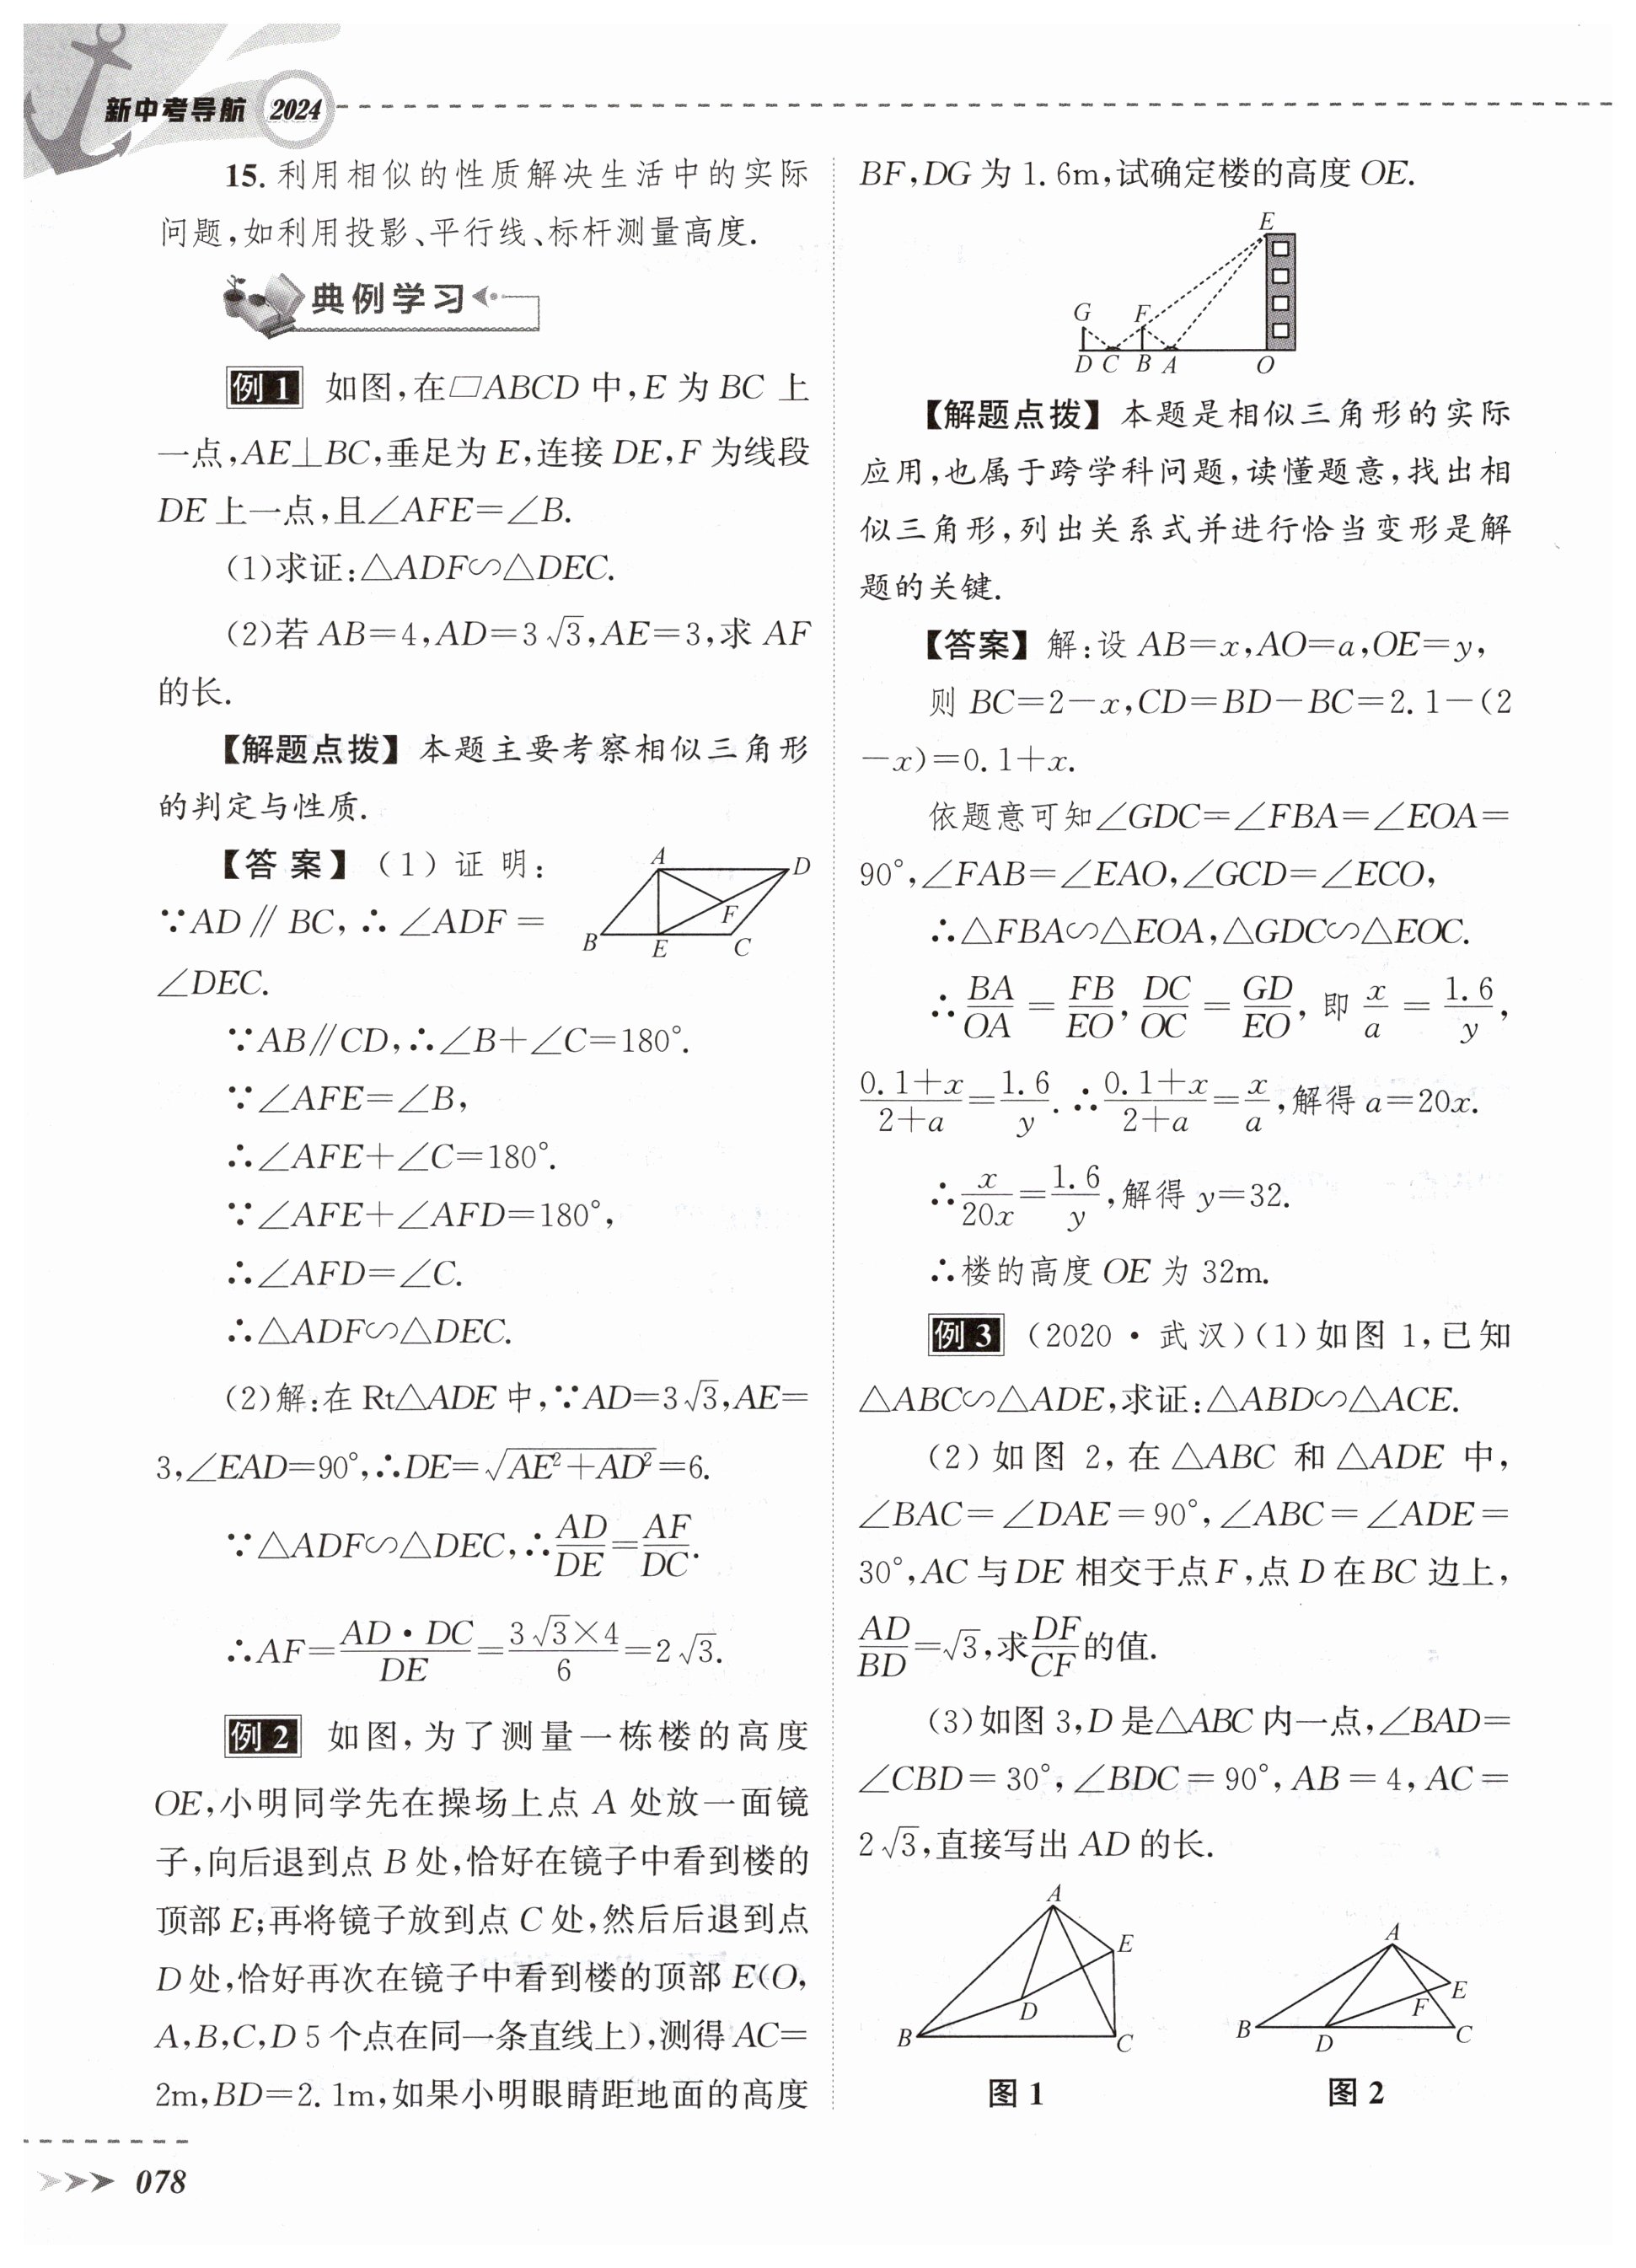 新中考导航 2024
15. 利用相似的性质解决生活中的实际
问题,如利用投影、平行线、标杆测量高度.
典例学习
例1 如图,在▱ABCD 中,E 为 BC 上
一点,AE⊥BC,垂足为 E,连接 DE,F 为线段
DE 上一点,且∠AFE=∠B.
(1)求证:△ADF∽△DEC.
(2)若 AB=4,AD=3√3,AE=3,求 AF
的长.
【解题点拨】 本题主要考察相似三角形
的判定与性质.
【答案】(1)证明:
∵AD∥BC,∴∠ADF=
∠DEC.
A
D
F
B
E
C
∵AB∥CD,∴∠B+∠C=180°.
∵∠AFE=∠B,
∴∠AFE+∠C=180°.
∵∠AFE+∠AFD=180°,
∴∠AFD=∠C.
∴△ADF∽△DEC.
(2)解:在 Rt△ADE 中,∵AD=3√3,AE=
3,∠EAD=90°,∴DE=√(AE²+AD²)=6.
∵△ADF∽△DEC,∴AD/DE=AF/DC.
∴AF=AD·DC/DE=3√3×4/6=2√3.
例2 如图,为了测量一栋楼的高度
OE,小明同学先在操场上点 A 处放一面镜
子,向后退到点 B 处,恰好在镜子中看到楼的
顶部 E;再将镜子放到点 C 处,然后后退到点
D 处,恰好再次在镜子中看到楼的顶部 E(O,
A,B,C,D 5 个点在同一条直线上),测得 AC=
2m,BD=2.1m,如果小明眼睛距地面的高度
BF,DG 为 1.6m,试确定楼的高度 OE.
E
G F
D C B A O
【解题点拨】 本题是相似三角形的实际
应用,也属于跨学科问题,读懂题意,找出相
似三角形,列出关系式并进行恰当变形是解
题的关键.
【答案】 解:设 AB=x,AO=a,OE=y,
则 BC=2-x,CD=BD-BC=2.1-(2
-x)=0.1+x.
依题意可知∠GDC=∠FBA=∠EOA=
90°,∠FAB=∠EAO,∠GCD=∠ECO,
∴△FBA∽△EOA,△GDC∽△EOC.
∴BA/OA=FB/EO,DC/OC=GD/EO,即 x/a=1.6/y,
(0.1+x)/(2+a)=1.6/y.∴(0.1+x)/(2+a)=x/a,解得 a=20x.
∴x/20x=1.6/y,解得 y=32.
∴楼的高度 OE 为 32m.
例3 (2020·武汉)(1)如图 1,已知
△ABC∽△ADE,求证:△ABD∽△ACE.
(2)如图 2,在△ABC 和△ADE 中,
∠BAC=∠DAE=90°,∠ABC=∠ADE=
30°,AC 与 DE 相交于点 F,点 D 在 BC 边上,
AD/BD=√3,求DF/CF的值.
(3)如图 3,D 是△ABC 内一点,∠BAD=
∠CBD=30°,∠BDC=90°,AB=4,AC=
2√3,直接写出 AD 的长.
A
E
D
B
C
图 1
A
E
F
B
D
C
图 2
078